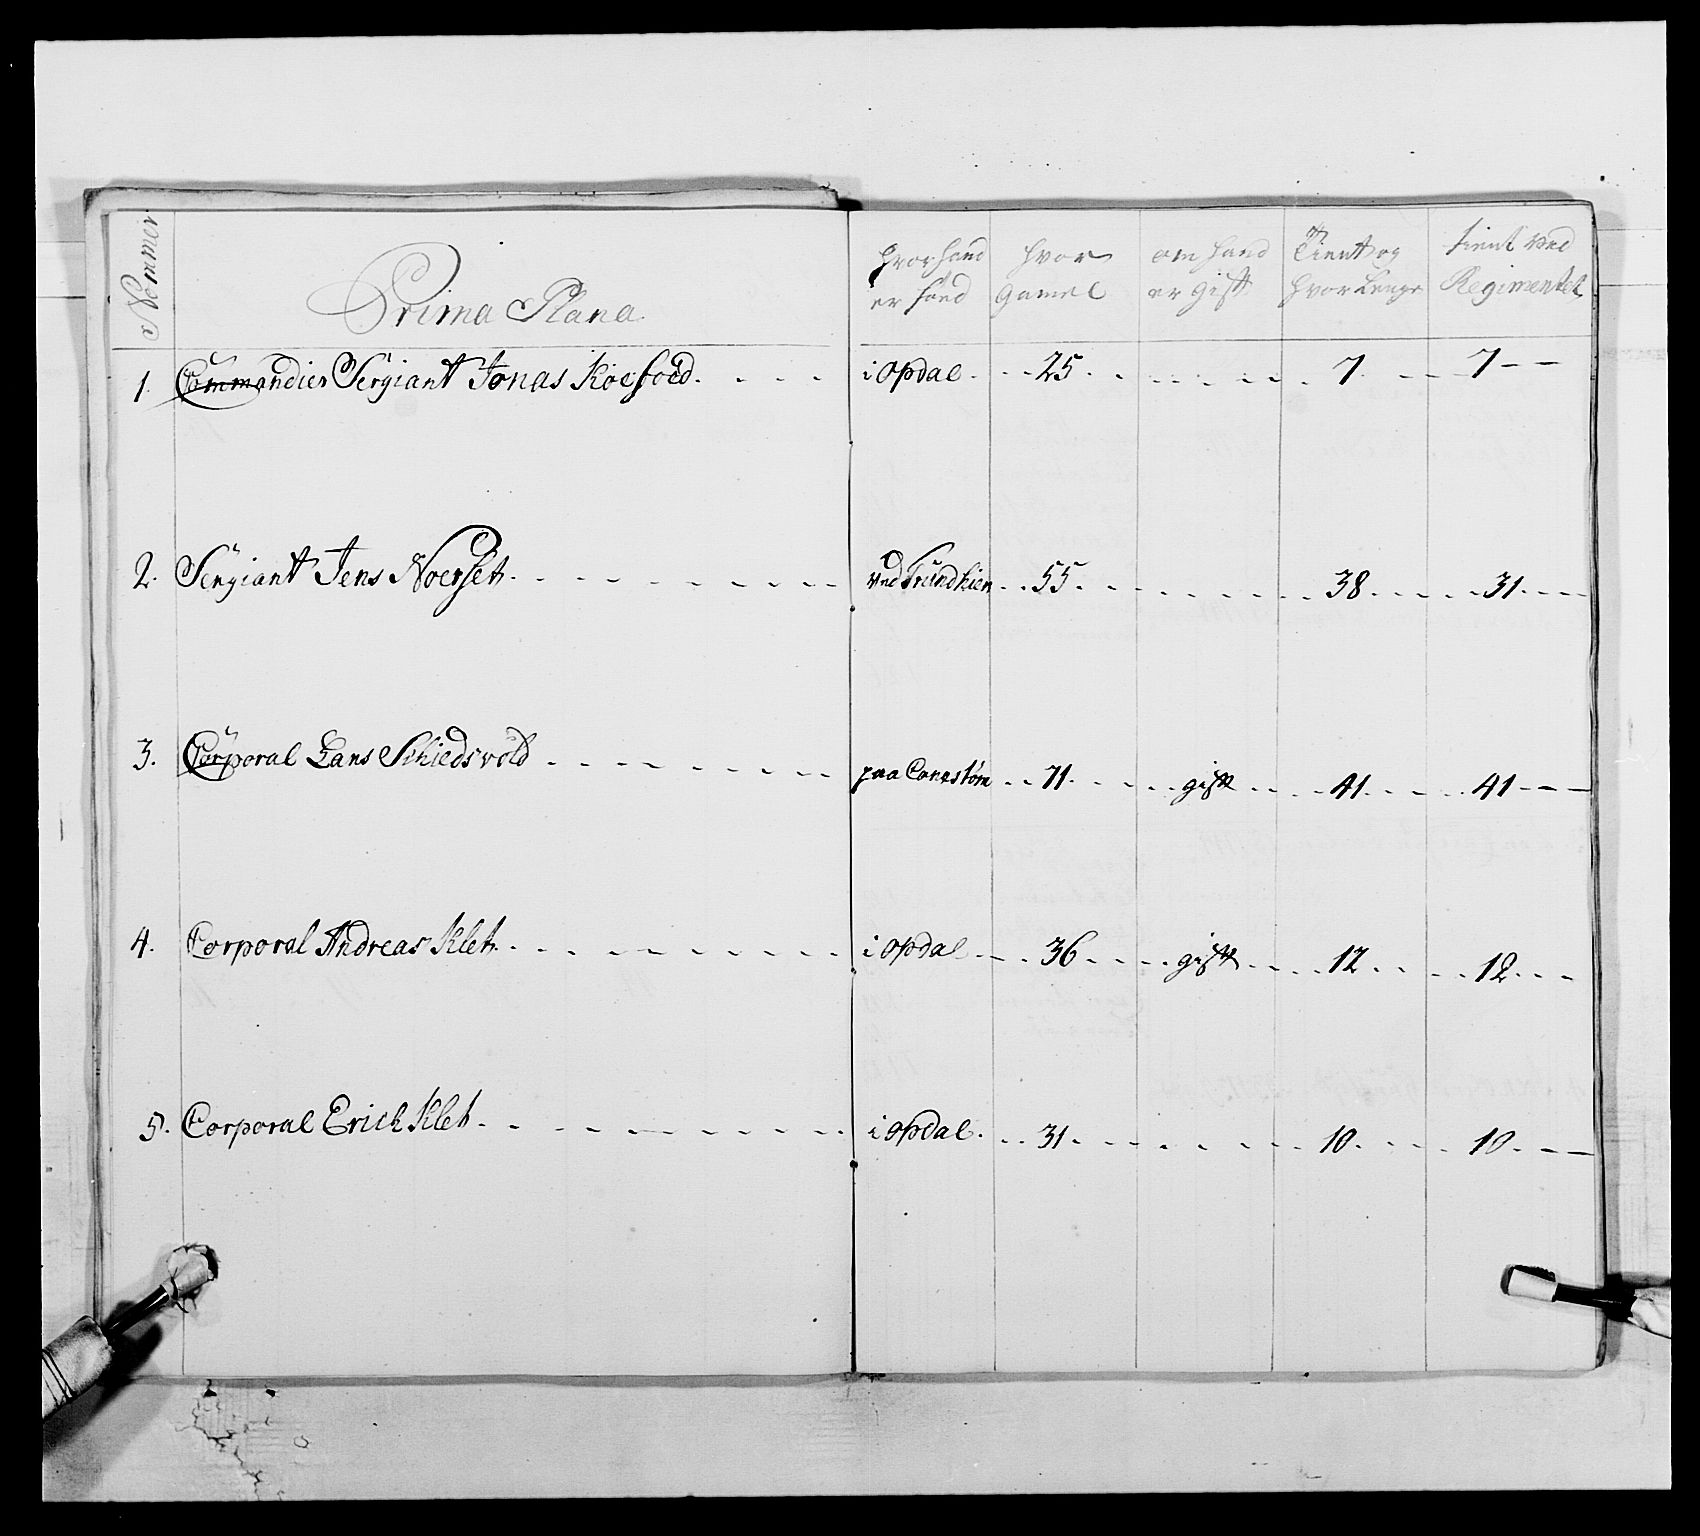 Nommer
Prima Plana
hvor hand er föed
hvor Gamel
om hand er gift
Tient og hvor Lenge
tient ved Regimentet
1. Commandier Sergiant Jonas Koefoed. i Opdal. 25. 7. 7
2. Sergiant Jens Noerset. ved Trundhiem 55. 38. 31.
3. Corporal Lars Schiedsvold paa 71. gift 41. 41
4. Corporal Andreas Klet. i Opdal 36. gift 12. 12.
5. Corporal Erich Klet. i Opdal. 31. 10. 10.